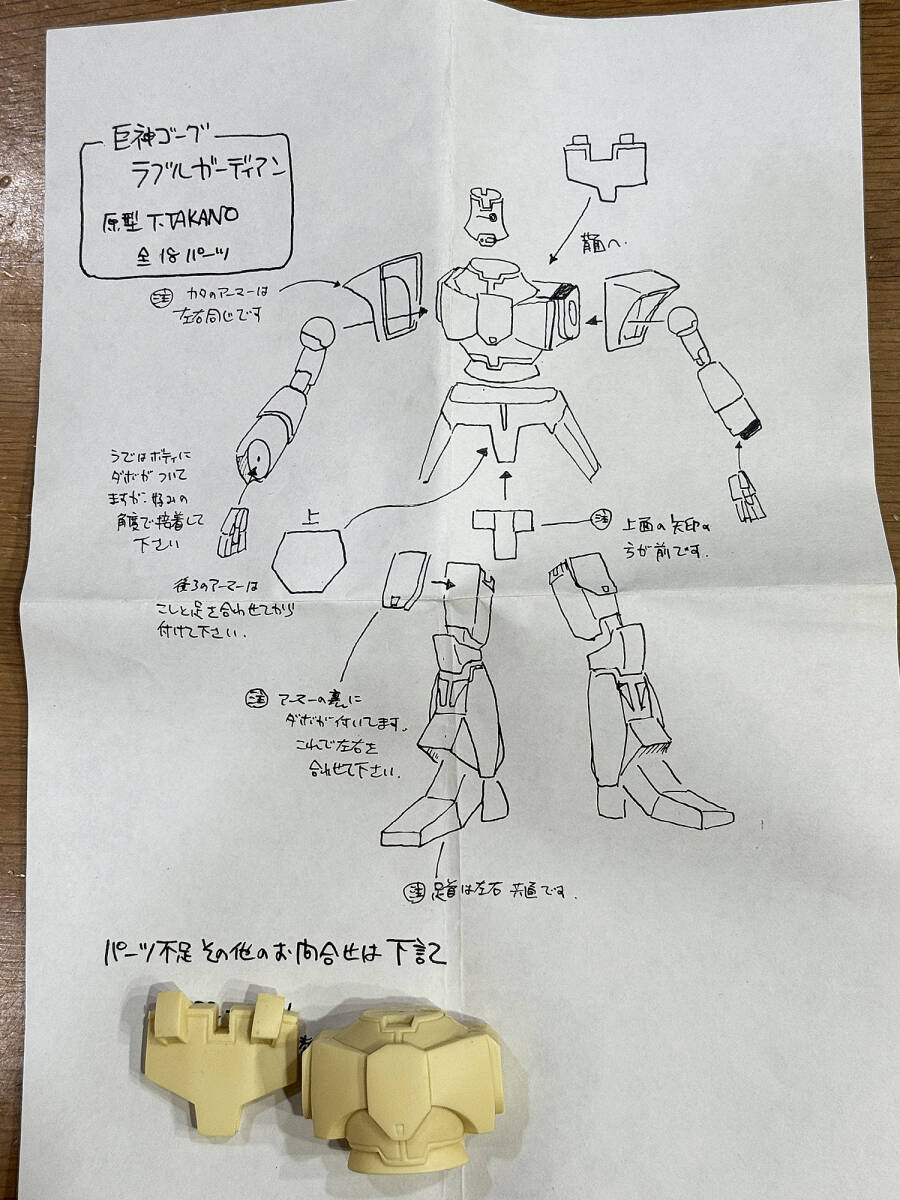 巨神ゴーグ
ラブルガーディアン
原型 T.TAKANO
全18パーツ
注 カタのアーマーは
左右同じです
背面へ
うではボディに
ダボがついて
ますが、好みの
角度で接着して
下さい
上
注 上面の矢印の
方が前です.
後ろのアーマーは
こしと足を合わせてから
付けて下さい.
注 アーマーの裏に
ダボが付いてます.
これで左右を
合わせて下さい.
注 足首は左右共通です.
パーツ不足その他のお問合せは下記